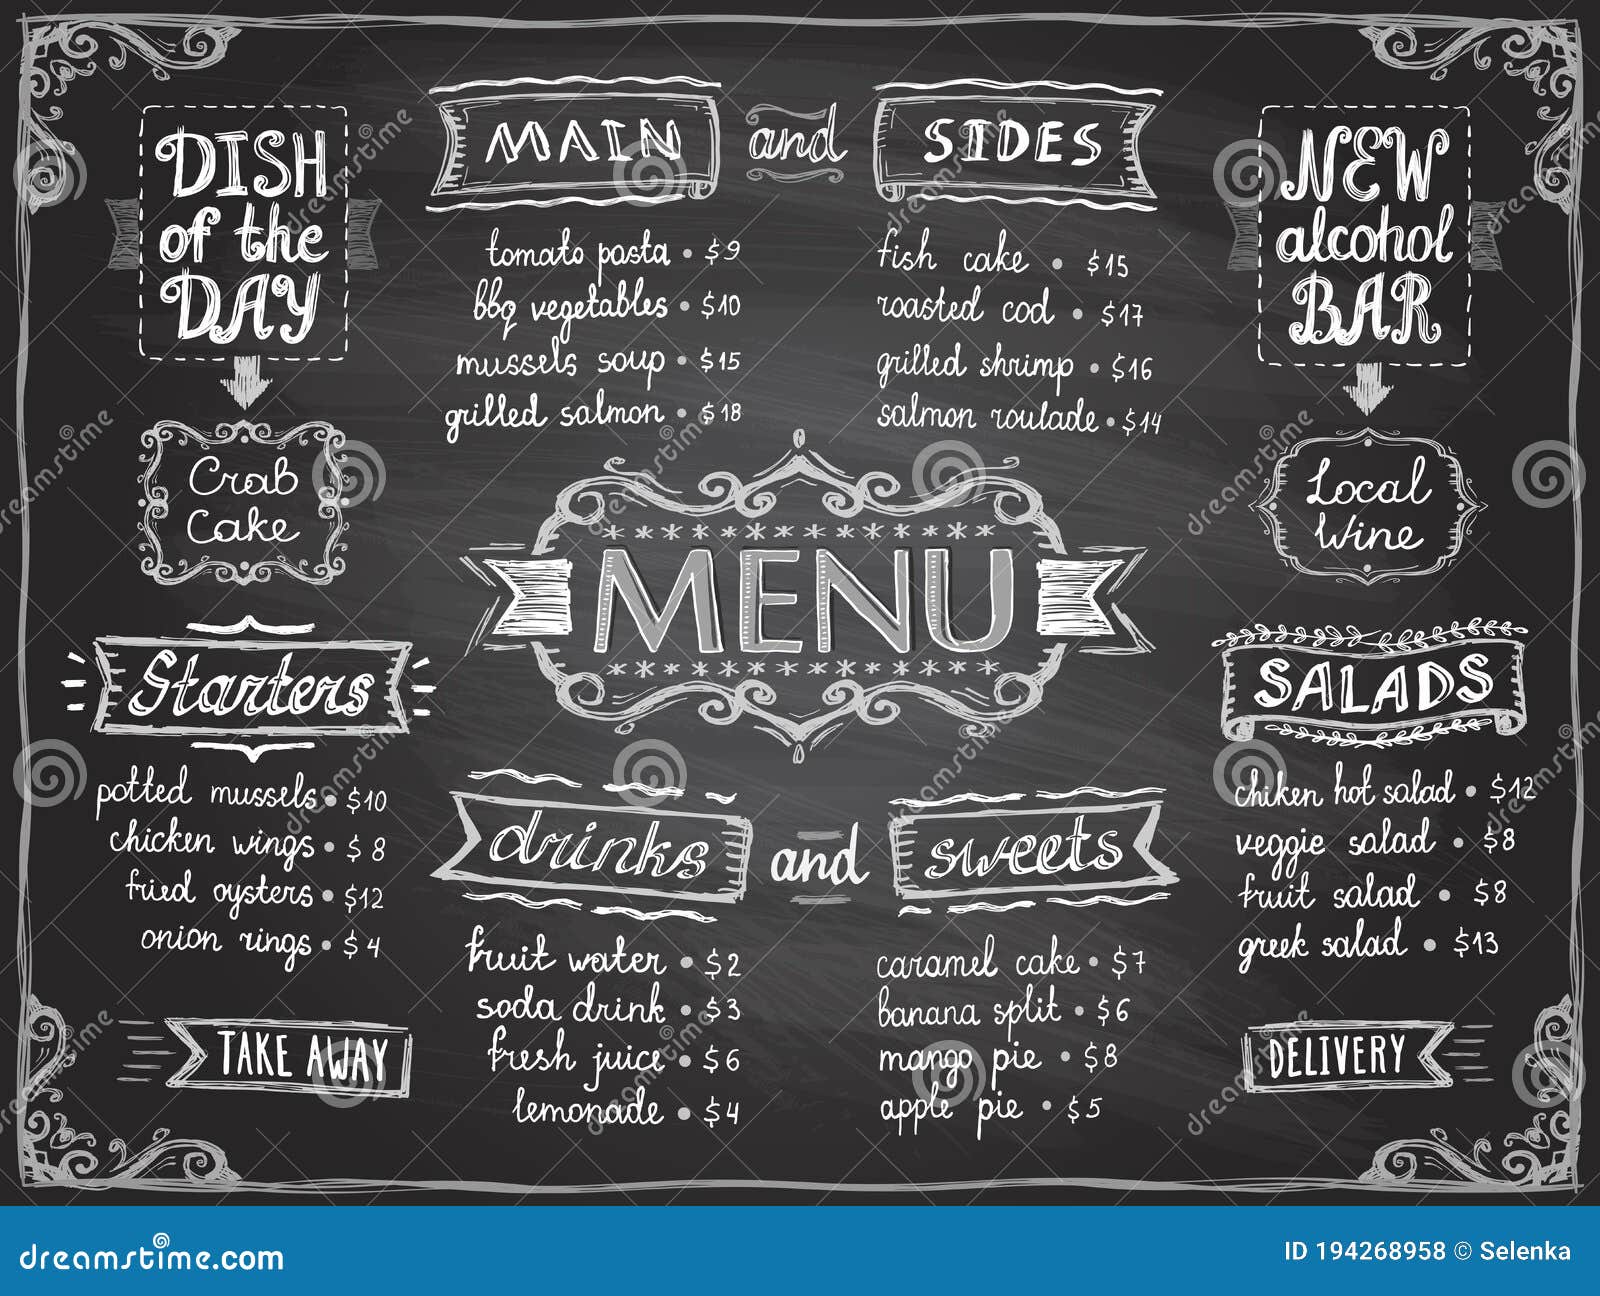 DISH
of the
DAY
Crab
Cake
MAIN and SIDES
tomato pasta • $9
bbq vegetables • $10
mussels soup • $15
grilled salmon • $18
fish cake • $15
roasted cod • $17
grilled shrimp • $16
salmon roulade • $14
NEW
alcohol
BAR
Local
Wine
MENU
Starters
potted mussels • $10
chicken wings • $8
fried oysters • $12
onion rings • $4
TAKE AWAY
drinks and sweets
fruit water • $2
soda drink • $3
fresh juice • $6
lemonade • $4
caramel cake • $7
banana split • $6
mango pie • $8
apple pie • $5
SALADS
chiken hot salad • $12
veggie salad • $8
fruit salad • $8
greek salad • $13
DELIVERY
dreamstime.com
ID 194268958 © Selenka